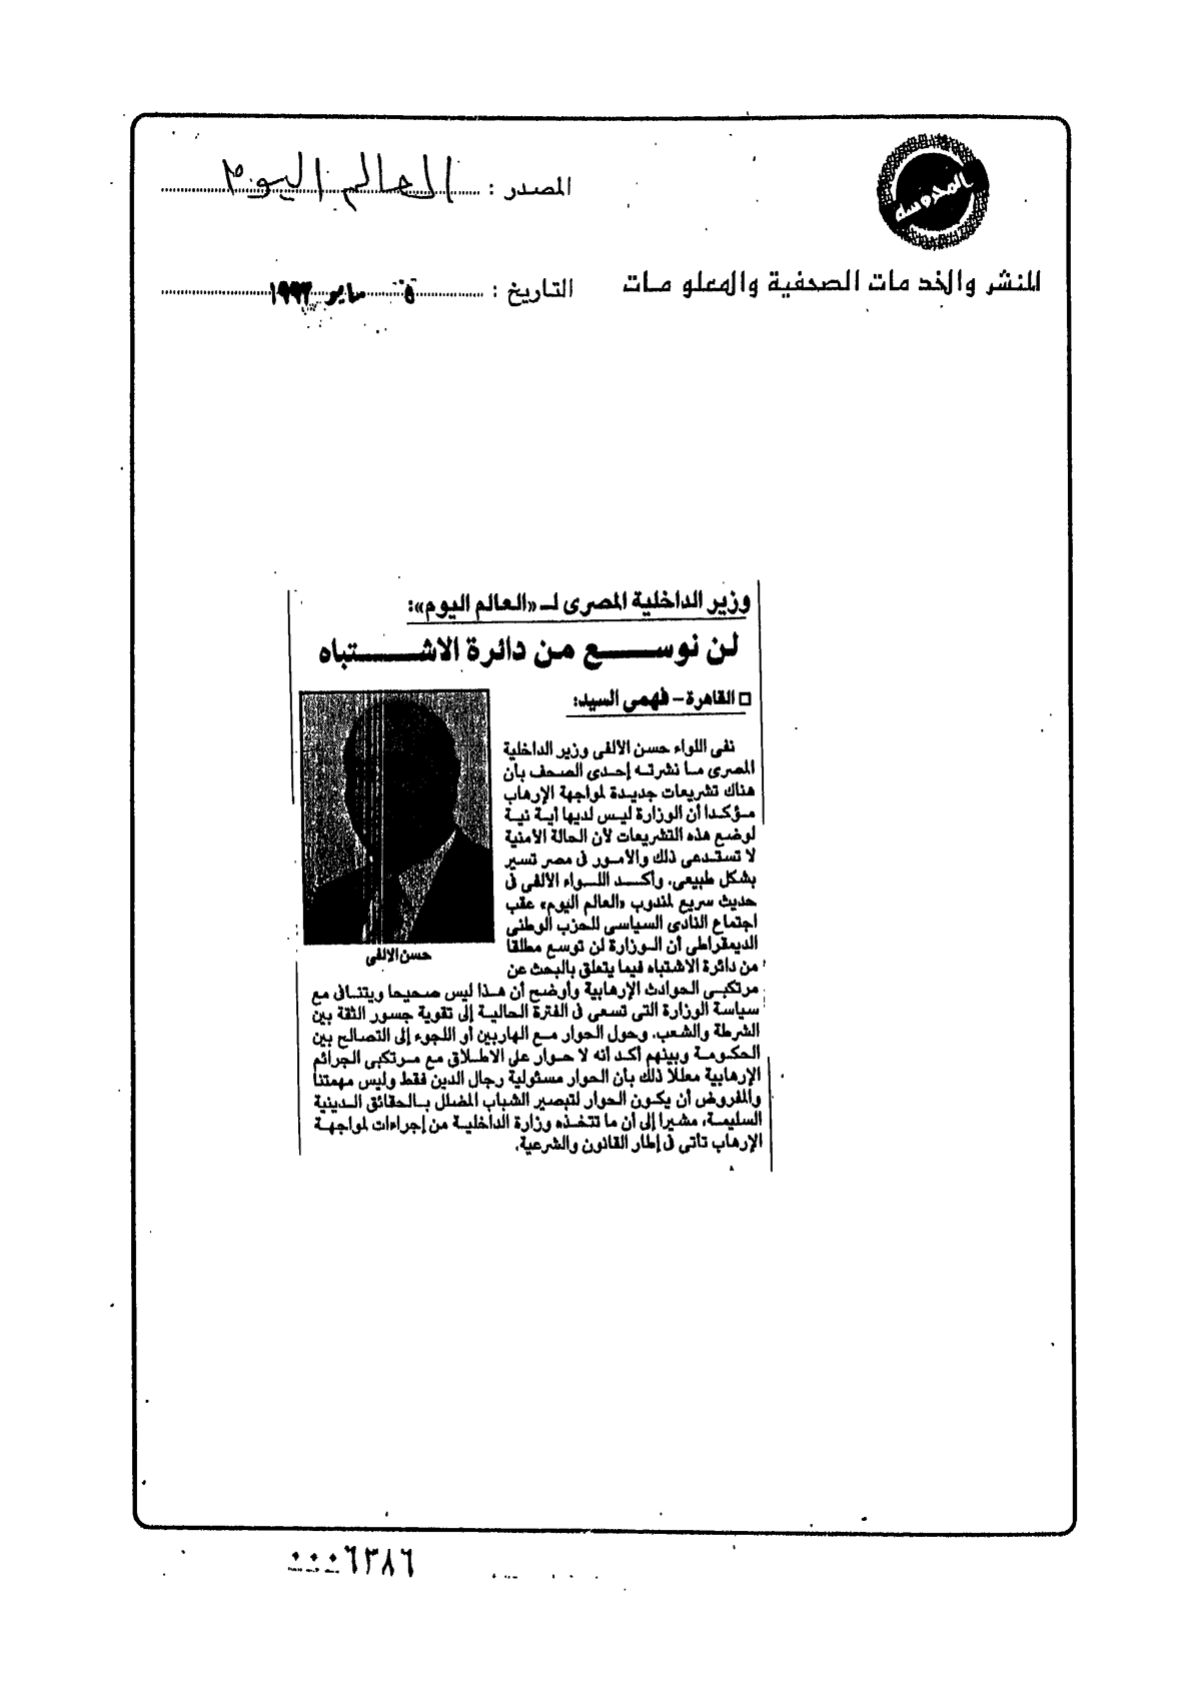 المحروسة
للنشر والخدمات الصحفية والمعلومات
المصدر : العالم اليوم
التاريخ : ٥ مايو ١٩٩٣
وزير الداخلية المصرى لـ «العالم اليوم»:
لن نوسع من دائرة الاشتباه
□ القاهرة – فهمى السيد:
نفى اللواء حسن الألفى وزير الداخلية
المصرى ما نشرته إحدى الصحف بأن
هناك تشريعات جديدة لمواجهة الإرهاب
مؤكدا أن الوزارة ليس لديها أية نية
لوضع هذه التشريعات لأن الحالة الأمنية
لا تستدعى ذلك والأمور فى مصر تسير
بشكل طبيعى. وأكد اللواء الألفى فى
حديث سريع لمندوب «العالم اليوم» عقب
اجتماع النادى السياسى للحزب الوطنى
الديمقراطى أن الوزارة لن توسع مطلقا
من دائرة الاشتباه فيما يتعلق بالبحث عن
مرتكبى الحوادث الإرهابية وأوضح أن هذا ليس صحيحا ويتنافى مع
سياسة الوزارة التى تسعى فى الفترة الحالية إلى تقوية جسور الثقة بين
الشرطة والشعب. وحول الحوار مع الهاربين أو اللجوء إلى التصالح بين
الحكومة وبينهم أكد أنه لا حوار على الاطلاق مع مرتكبى الجرائم
الإرهابية معللا ذلك بأن الحوار مسئولية رجال الدين فقط وليس مهمتنا
والمفروض أن يكون الحوار لتبصير الشباب المضلل بالحقائق الدينية
السليمة، مشيرا إلى أن ما تتخذه وزارة الداخلية من إجراءات لمواجهة
الإرهاب تأتى فى إطار القانون والشرعية.
حسن الألفى
٠٠٠٦٣٨٦